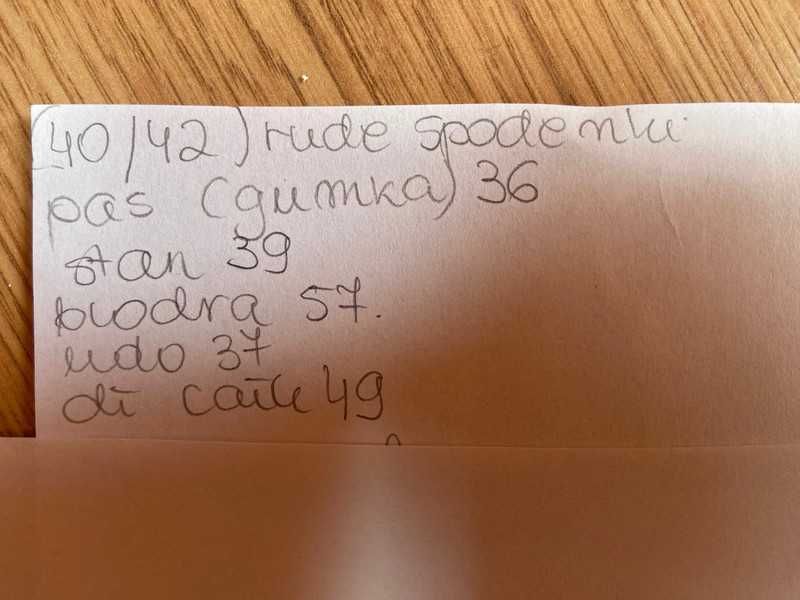 (40/42) rude spodenki
pas (gumka) 36
stan 39
biodra 57.
udo 37
dł całk 49